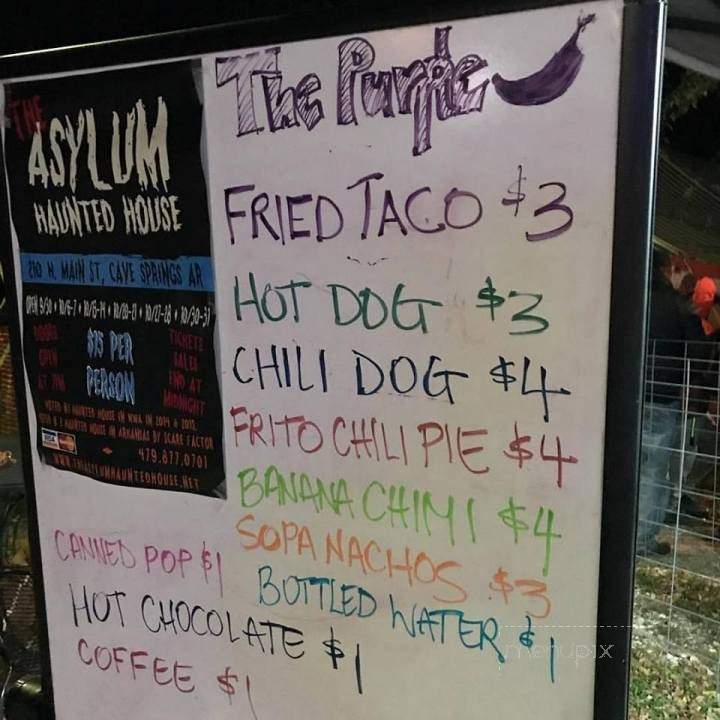 THE
ASYLUM
HAUNTED HOUSE
210 N. MAIN ST, CAVE SPRINGS AR
OPEN 9/30 • 10/6-7 • 10/13-14 • 10/20-21 • 10/27-28 • 10/30-31
DOORS
OPEN
AT 7PM
$15 PER
PERSON
TICKETS
SALES
END AT
MIDNIGHT
VOTED #1 HAUNTED HOUSE IN NWA IN 2014 & 2015.
#1 HAUNTED HOUSE IN ARKANSAS BY SCARE FACTOR
VISA
479.877.0701
WWW.THEASYLUMHAUNTEDHOUSE.NET
The Purple
FRIED TACO $3
HOT DOG $3
CHILI DOG $4
FRITO CHILI PIE $4
BANANA CHIMI $4
SOPA NACHOS $3
BOTTLED WATER $1
CANNED POP $1
HOT CHOCOLATE $1
COFFEE $1
menupix